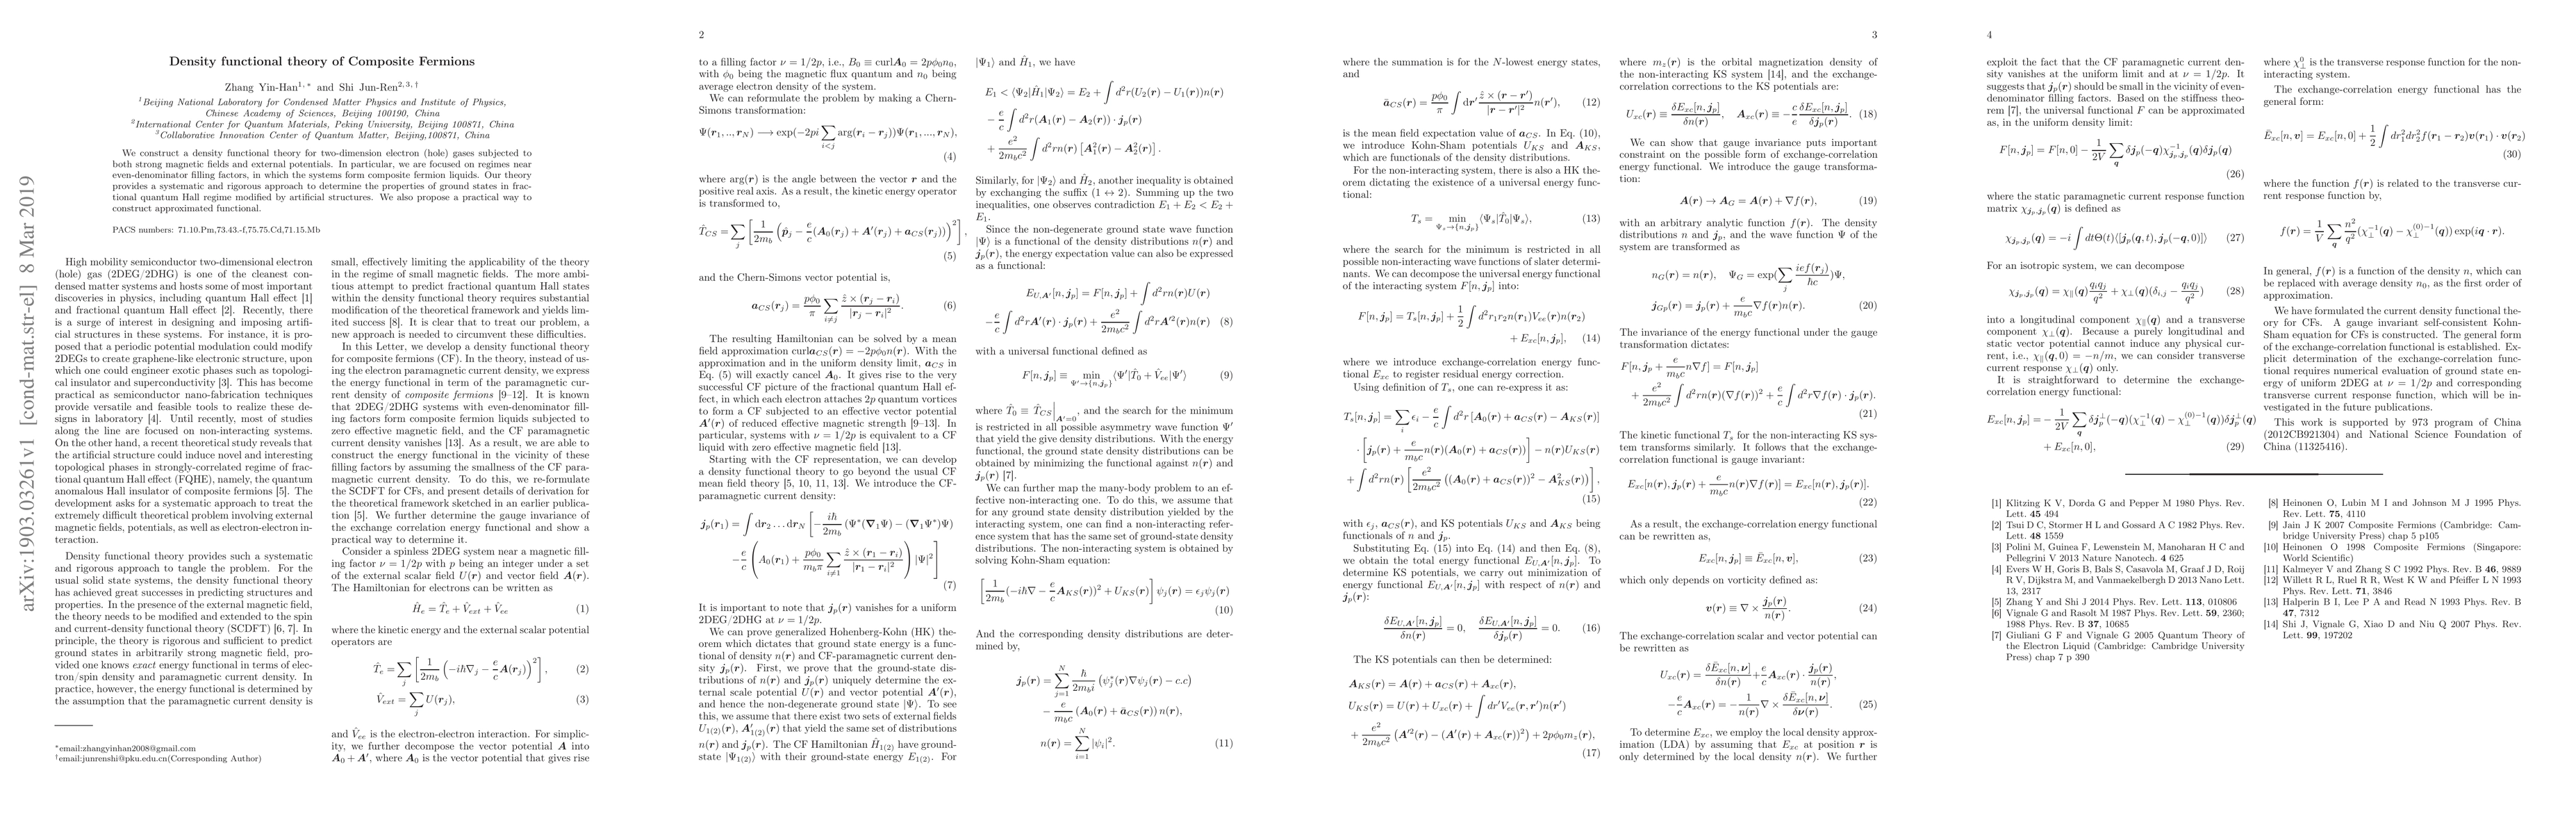 arXiv:1903.03261v1 [cond-mat.str-el] 8 Mar 2019
Density functional theory of Composite Fermions
Zhang Yin-Han1, ∗ and Shi Jun-Ren2, 3, †
1Beijing National Laboratory for Condensed Matter Physics and Institute of Physics,
Chinese Academy of Sciences, Beijing 100190, China
2International Center for Quantum Materials, Peking University, Beijing 100871, China
3Collaborative Innovation Center of Quantum Matter, Beijing,100871, China
We construct a density functional theory for two-dimension electron (hole) gases subjected to
both strong magnetic fields and external potentials. In particular, we are focused on regimes near
even-denominator filling factors, in which the systems form composite fermion liquids. Our theory
provides a systematic and rigorous approach to determine the properties of ground states in frac-
tional quantum Hall regime modified by artificial structures. We also propose a practical way to
construct approximated functional.
PACS numbers: 71.10.Pm,73.43.-f,75.75.Cd,71.15.Mb
High mobility semiconductor two-dimensional electron
(hole) gas (2DEG/2DHG) is one of the cleanest con-
densed matter systems and hosts some of most important
discoveries in physics, including quantum Hall effect [1]
and fractional quantum Hall effect [2]. Recently, there
is a surge of interest in designing and imposing artifi-
cial structures in these systems. For instance, it is pro-
posed that a periodic potential modulation could modify
2DEGs to create graphene-like electronic structure, upon
which one could engineer exotic phases such as topolog-
ical insulator and superconductivity [3]. This has become
practical as semiconductor nano-fabrication techniques
provide versatile and feasible tools to realize these de-
signs in laboratory [4]. Until recently, most of studies
along the line are focused on non-interacting systems.
On the other hand, a recent theoretical study reveals that
the artificial structure could induce novel and interesting
topological phases in strongly-correlated regime of frac-
tional quantum Hall effect (FQHE), namely, the quantum
anomalous Hall insulator of composite fermions [5]. The
development asks for a systematic approach to treat the
extremely difficult theoretical problem involving external
magnetic fields, potentials, as well as electron-electron in-
teraction.
Density functional theory provides such a systematic
and rigorous approach to tangle the problem. For the
usual solid state systems, the density functional theory
has achieved great successes in predicting structures and
properties. In the presence of the external magnetic field,
the theory needs to be modified and extended to the spin
and current-density functional theory (SCDFT) [6, 7]. In
principle, the theory is rigorous and sufficient to predict
ground states in arbitrarily strong magnetic field, pro-
vided one knows exact energy functional in terms of elec-
tron/spin density and paramagnetic current density. In
practice, however, the energy functional is determined by
the assumption that the paramagnetic current density is
∗email:zhangyinhan2008@gmail.com
†email:junrenshi@pku.edu.cn(Corresponding Author)
small, effectively limiting the applicability of the theory
in the regime of small magnetic fields. The more ambi-
tious attempt to predict fractional quantum Hall states
within the density functional theory requires substantial
modification of the theoretical framework and yields lim-
ited success [8]. It is clear that to treat our problem, a
new approach is needed to circumvent these difficulties.
In this Letter, we develop a density functional theory
for composite fermions (CF). In the theory, instead of us-
ing the electron paramagnetic current density, we express
the energy functional in term of the paramagnetic cur-
rent density of composite fermions [9–12]. It is known
that 2DEG/2DHG systems with even-denominator fill-
ing factors form composite fermion liquids subjected to
zero effective magnetic field, and the CF paramagnetic
current density vanishes [13]. As a result, we are able to
construct the energy functional in the vicinity of these
filling factors by assuming the smallness of the CF para-
magnetic current density. To do this, we re-formulate
the SCDFT for CFs, and present details of derivation for
the theoretical framework sketched in an earlier publica-
tion [5]. We further determine the gauge invariance of
the exchange correlation energy functional and show a
practical way to determine it.
Consider a spinless 2DEG system near a magnetic fill-
ing factor ν = 1/2p with p being an integer under a set
of the external scalar field U(r) and vector field A(r).
The Hamiltonian for electrons can be written as
Ĥe = T̂e + V̂ext + V̂ee (1)
where the kinetic energy and the external scalar potential
operators are
T̂e = ∑j [ 1/2mb (−iħ∇j − e/c A(rj))2 ], (2)
V̂ext = ∑j U(rj), (3)
and V̂ee is the electron-electron interaction. For simplic-
ity, we further decompose the vector potential A into
A0 + A′, where A0 is the vector potential that gives rise
2
to a filling factor ν = 1/2p, i.e., B0 ≡ curlA0 = 2pϕ0n0,
with ϕ0 being the magnetic flux quantum and n0 being
average electron density of the system.
We can reformulate the problem by making a Chern-
Simons transformation:
Ψ(r1, .., rN) ⟶ exp(−2pi ∑i<j arg(ri − rj))Ψ(r1, ..., rN),
(4)
where arg(r) is the angle between the vector r and the
positive real axis. As a result, the kinetic energy operator
is transformed to,
T̂CS = ∑j [ 1/2mb (p̂j − e/c (A0(rj) + A′(rj) + aCS(rj)))2 ],
(5)
and the Chern-Simons vector potential is,
aCS(rj) = pϕ0/π ∑i≠j ẑ × (rj − ri)/|rj − ri|2. (6)
The resulting Hamiltonian can be solved by a mean
field approximation curlaCS(r) = −2pϕ0n(r). With the
approximation and in the uniform density limit, aCS in
Eq. (5) will exactly cancel A0. It gives rise to the very
successful CF picture of the fractional quantum Hall ef-
fect, in which each electron attaches 2p quantum vortices
to form a CF subjected to an effective vector potential
A′(r) of reduced effective magnetic strength [9–13]. In
particular, systems with ν = 1/2p is equivalent to a CF
liquid with zero effective magnetic field [13].
Starting with the CF representation, we can develop
a density functional theory to go beyond the usual CF
mean field theory [5, 10, 11, 13]. We introduce the CF-
paramagnetic current density:
jp(r1) = ∫ dr2 . . . drN [ −iħ/2mb (Ψ∗(∇1Ψ) − (∇1Ψ∗)Ψ)
− e/c ( A0(r1) + pϕ0/mbπ ∑i≠1 ẑ × (r1 − ri)/|r1 − ri|2 ) |Ψ|2 ]
(7)
It is important to note that jp(r) vanishes for a uniform
2DEG/2DHG at ν = 1/2p.
We can prove generalized Hohenberg-Kohn (HK) the-
orem which dictates that ground state energy is a func-
tional of density n(r) and CF-paramagnetic current den-
sity jp(r). First, we prove that the ground-state dis-
tributions of n(r) and jp(r) uniquely determine the ex-
ternal scale potential U(r) and vector potential A′(r),
and hence the non-degenerate ground state |Ψ⟩. To see
this, we assume that there exist two sets of external fields
U1(2)(r), A′1(2)(r) that yield the same set of distributions
n(r) and jp(r). The CF Hamiltonian Ĥ1(2) have ground-
state |Ψ1(2)⟩ with their ground-state energy E1(2). For
|Ψ1⟩ and Ĥ1, we have
E1 < ⟨Ψ2|Ĥ1|Ψ2⟩ = E2 + ∫ d2r(U2(r) − U1(r))n(r)
− e/c ∫ d2r(A1(r) − A2(r)) · jp(r)
+ e2/2mbc2 ∫ d2rn(r) [A21(r) − A22(r)].
Similarly, for |Ψ2⟩ and Ĥ2, another inequality is obtained
by exchanging the suffix (1 ↔ 2). Summing up the two
inequalities, one observes contradiction E1 + E2 < E2 +
E1.
Since the non-degenerate ground state wave function
|Ψ⟩ is a functional of the density distributions n(r) and
jp(r), the energy expectation value can also be expressed
as a functional:
EU,A′[n, jp] = F[n, jp] + ∫ d2rn(r)U(r)
− e/c ∫ d2rA′(r) · jp(r) + e2/2mbc2 ∫ d2rA′2(r)n(r) (8)
with a universal functional defined as
F[n, jp] ≡ minΨ′→{n,jp} ⟨Ψ′|T̂0 + V̂ee|Ψ′⟩ (9)
where T̂0 ≡ T̂CS|A′=0, and the search for the minimum
is restricted in all possible asymmetry wave function Ψ′
that yield the give density distributions. With the energy
functional, the ground state density distributions can be
obtained by minimizing the functional against n(r) and
jp(r) [7].
We can further map the many-body problem to an ef-
fective non-interacting one. To do this, we assume that
for any ground state density distribution yielded by the
interacting system, one can find a non-interacting refer-
ence system that has the same set of ground-state density
distributions. The non-interacting system is obtained by
solving Kohn-Sham equation:
[ 1/2mb (−iħ∇ − e/c AKS(r))2 + UKS(r) ] ψj(r) = ϵjψj(r)
(10)
And the corresponding density distributions are deter-
mined by,
jp(r) = ∑Nj=1 ħ/2mbi (ψ∗j(r)∇ψj(r) − c.c)
− e/mbc (A0(r) + āCS(r)) n(r),
n(r) = ∑Ni=1 |ψi|2. (11)
3
where the summation is for the N-lowest energy states,
and
āCS(r) = pϕ0/π ∫ dr′ ẑ × (r − r′)/|r − r′|2 n(r′), (12)
is the mean field expectation value of aCS. In Eq. (10),
we introduce Kohn-Sham potentials UKS and AKS,
which are functionals of the density distributions.
For the non-interacting system, there is also a HK the-
orem dictating the existence of a universal energy func-
tional:
Ts = minΨs→{n,jp} ⟨Ψs|T̂0|Ψs⟩, (13)
where the search for the minimum is restricted in all
possible non-interacting wave functions of slater determi-
nants. We can decompose the universal energy functional
of the interacting system F[n, jp] into:
F[n, jp] = Ts[n, jp] + 1/2 ∫ d2r1r2n(r1)Vee(r)n(r2)
+ Exc[n, jp], (14)
where we introduce exchange-correlation energy func-
tional Exc to register residual energy correction.
Using definition of Ts, one can re-express it as:
Ts[n, jp] = ∑i ϵi − e/c ∫ d2r [A0(r) + aCS(r) − AKS(r)]
· [ jp(r) + e/mbc n(r)(A0(r) + aCS(r)) ] − n(r)UKS(r)
+ ∫ d2rn(r) [ e2/2mbc2 ((A0(r) + aCS(r))2 − A2KS(r)) ],
(15)
with ϵj, aCS(r), and KS potentials UKS and AKS being
functionals of n and jp.
Substituting Eq. (15) into Eq. (14) and then Eq. (8),
we obtain the total energy functional EU,A′[n, jp]. To
determine KS potentials, we carry out minimization of
energy functional EU,A′[n, jp] with respect of n(r) and
jp(r):
δEU,A′[n, jp]/δn(r) = 0, δEU,A′[n, jp]/δjp(r) = 0. (16)
The KS potentials can then be determined:
AKS(r) = A(r) + aCS(r) + Axc(r),
UKS(r) = U(r) + Uxc(r) + ∫ dr′Vee(r, r′)n(r′)
+ e2/2mbc2 (A′2(r) − (A′(r) + Axc(r))2) + 2pϕ0mz(r),
(17)
where mz(r) is the orbital magnetization density of
the non-interacting KS system [14], and the exchange-
correlation corrections to the KS potentials are:
Uxc(r) ≡ δExc[n, jp]/δn(r), Axc(r) ≡ −c/e δExc[n, jp]/δjp(r). (18)
We can show that gauge invariance puts important
constraint on the possible form of exchange-correlation
energy functional. We introduce the gauge transforma-
tion:
A(r) → AG = A(r) + ∇f(r), (19)
with an arbitrary analytic function f(r). The density
distributions n and jp, and the wave function Ψ of the
system are transformed as
nG(r) = n(r), ΨG = exp(∑j ief(rj)/ħc)Ψ,
jGp(r) = jp(r) + e/mbc ∇f(r)n(r). (20)
The invariance of the energy functional under the gauge
transformation dictates:
F[n, jp + e/mbc n∇f] = F[n, jp]
+ e2/2mbc2 ∫ d2rn(r)(∇f(r))2 + e/c ∫ d2r∇f(r) · jp(r).
(21)
The kinetic functional Ts for the non-interacting KS sys-
tem transforms similarly. It follows that the exchange-
correlation functional is gauge invariant:
Exc[n(r), jp(r) + e/mbc n(r)∇f(r)] = Exc[n(r), jp(r)].
(22)
As a result, the exchange-correlation energy functional
can be rewritten as,
Exc[n, jp] ≡ Ēxc[n, v], (23)
which only depends on vorticity defined as:
v(r) ≡ ∇ × jp(r)/n(r). (24)
The exchange-correlation scalar and vector potential can
be rewritten as
Uxc(r) = δĒxc[n, ν]/δn(r) + e/c Axc(r) · jp(r)/n(r),
−e/c Axc(r) = −1/n(r) ∇ × δĒxc[n, ν]/δν(r). (25)
To determine Exc, we employ the local density approx-
imation (LDA) by assuming that Exc at position r is
only determined by the local density n(r). We further
4
exploit the fact that the CF paramagnetic current den-
sity vanishes at the uniform limit and at ν = 1/2p. It
suggests that jp(r) should be small in the vicinity of even-
denominator filling factors. Based on the stiffness theo-
rem [7], the universal functional F can be approximated
as, in the uniform density limit:
F[n, jp] = F[n, 0] − 1/2V ∑q δjp(−q)χ−1jp,jp(q)δjp(q)
(26)
where the static paramagnetic current response function
matrix χjp,jp(q) is defined as
χjp,jp(q) = −i ∫ dtΘ(t)⟨[jp(q, t), jp(−q, 0)]⟩ (27)
For an isotropic system, we can decompose
χjp,jp(q) = χ∥(q) qiqj/q2 + χ⊥(q)(δi,j − qiqj/q2) (28)
into a longitudinal component χ∥(q) and a transverse
component χ⊥(q). Because a purely longitudinal and
static vector potential cannot induce any physical cur-
rent, i.e., χ∥(q, 0) = −n/m, we can consider transverse
current response χ⊥(q) only.
It is straightforward to determine the exchange-
correlation energy functional:
Exc[n, jp] = − 1/2V ∑q δj⊥p(−q)(χ⊥−1(q) − χ⊥(0)−1(q))δj⊥p(q)
+ Exc[n, 0], (29)
where χ0⊥ is the transverse response function for the non-
interacting system.
The exchange-correlation energy functional has the
general form:
Ēxc[n, v] = Exc[n, 0] + 1/2 ∫ dr21dr22f(r1 − r2)v(r1) · v(r2)
(30)
where the function f(r) is related to the transverse cur-
rent response function by,
f(r) = 1/V ∑q n2/q2 (χ⊥−1(q) − χ⊥(0)−1(q)) exp(iq · r).
In general, f(r) is a function of the density n, which can
be replaced with average density n0, as the first order of
approximation.
We have formulated the current density functional the-
ory for CFs. A gauge invariant self-consistent Kohn-
Sham equation for CFs is constructed. The general form
of the exchange-correlation functional is established. Ex-
plicit determination of the exchange-correlation func-
tional requires numerical evaluation of ground state en-
ergy of uniform 2DEG at ν = 1/2p and corresponding
transverse current response function, which will be in-
vestigated in the future publications.
This work is supported by 973 program of China
(2012CB921304) and National Science Foundation of
China (11325416).
[1] Klitzing K V, Dorda G and Pepper M 1980 Phys. Rev.
Lett. 45 494
[2] Tsui D C, Stormer H L and Gossard A C 1982 Phys. Rev.
Lett. 48 1559
[3] Polini M, Guinea F, Lewenstein M, Manoharan H C and
Pellegrini V 2013 Nature Nanotech. 4 625
[4] Evers W H, Goris B, Bals S, Casavola M, Graaf J D, Roij
R V, Dijkstra M, and Vanmaekelbergh D 2013 Nano Lett.
13, 2317
[5] Zhang Y and Shi J 2014 Phys. Rev. Lett. 113, 010806
[6] Vignale G and Rasolt M 1987 Phys. Rev. Lett. 59, 2360;
1988 Phys. Rev. B 37, 10685
[7] Giuliani G F and Vignale G 2005 Quantum Theory of
the Electron Liquid (Cambridge: Cambridge University
Press) chap 7 p 390
[8] Heinonen O, Lubin M I and Johnson M J 1995 Phys.
Rev. Lett. 75, 4110
[9] Jain J K 2007 Composite Fermions (Cambridge: Cam-
bridge University Press) chap 5 p105
[10] Heinonen O 1998 Composite Fermions (Singapore:
World Scientific)
[11] Kalmeyer V and Zhang S C 1992 Phys. Rev. B 46, 9889
[12] Willett R L, Ruel R R, West K W and Pfeiffer L N 1993
Phys. Rev. Lett. 71, 3846
[13] Halperin B I, Lee P A and Read N 1993 Phys. Rev. B
47, 7312
[14] Shi J, Vignale G, Xiao D and Niu Q 2007 Phys. Rev.
Lett. 99, 197202